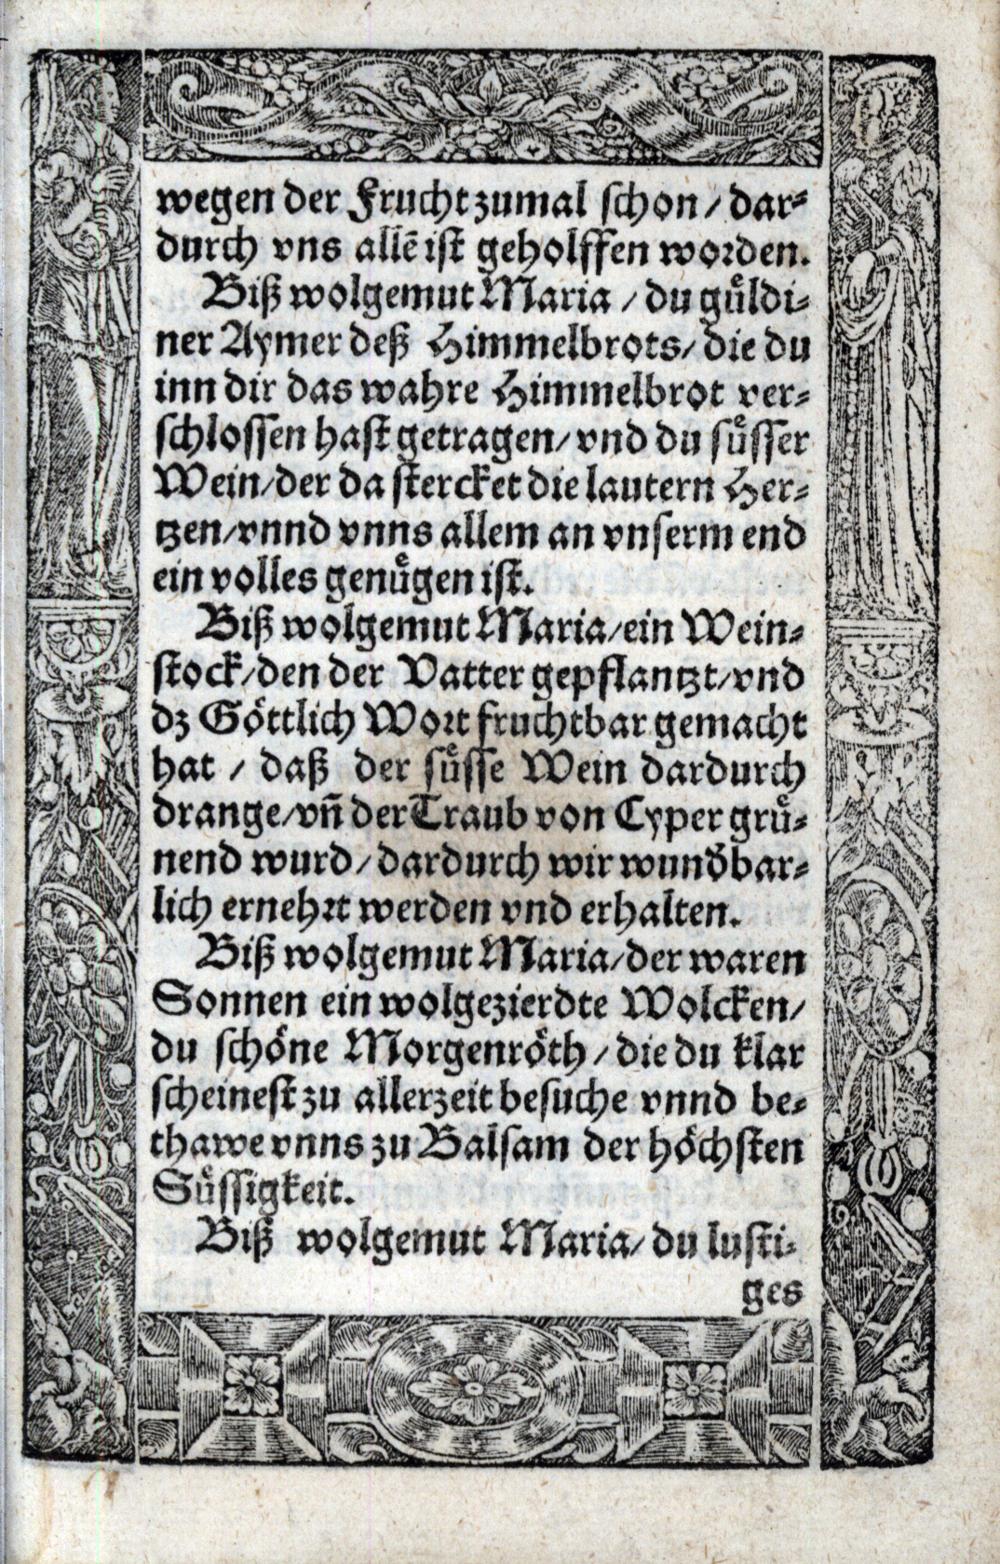 wegen der Frucht zumal schon / dar-
durch vns allē ist geholffen worden.
Biß wolgemut Maria / du guͤldi-
ner Aymer deß Himmelbrots / die du
inn dir das wahre Himmelbrot ver-
schlossen hast getragen / vnd du suͤsser
Wein / der da stercket die lautern Her-
tzen / vnnd vnns allem an vnserm end
ein volles genuͤgen ist.
Biß wolgemut Maria / ein Wein-
stock / den der Vatter gepflantzt / vnd
dz Goͤttlich Wort fruchtbar gemacht
hat / daß der suͤsse Wein dardurch
drange / vñ der Traub von Cyper gruͤ-
nend wurd / dardurch wir wundbar-
lich ernehrt werden vnd erhalten.
Biß wolgemut Maria / der waren
Sonnen ein wolgezierdte Wolcken /
du schoͤne Morgenroͤth / die du klar
scheinest zu allerzeit besuche vnnd be-
thawe vnns zu Balsam der hoͤchsten
Suͤssigkeit.
Biß wolgemut Maria / du lusti-
ges